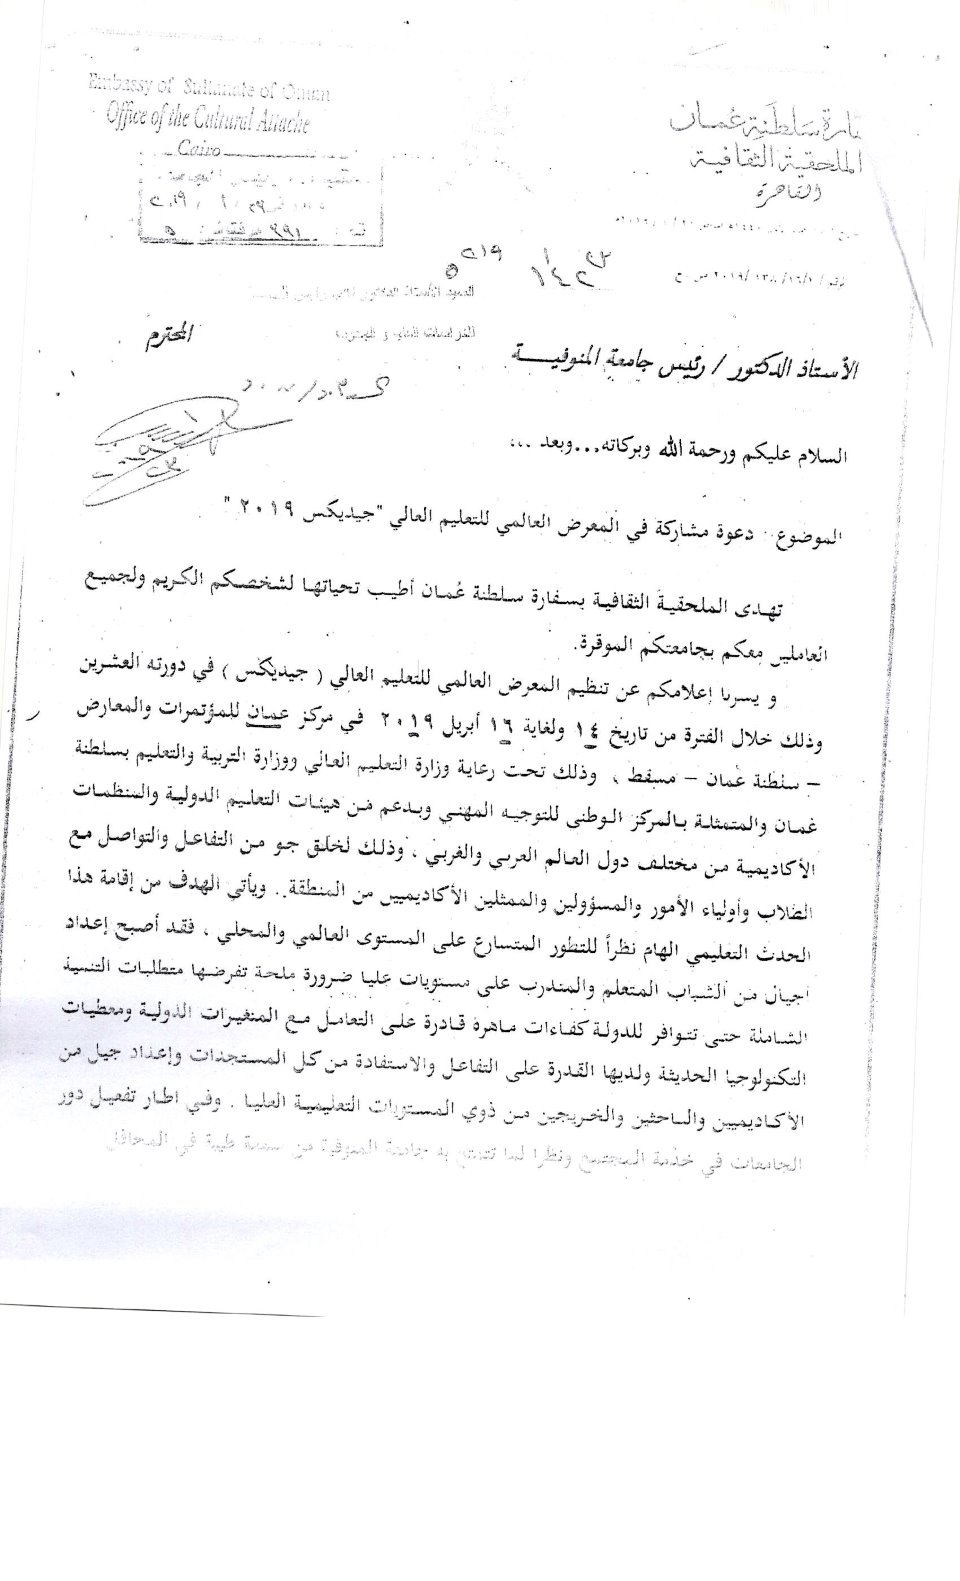 Embassy of Sultanate of Oman
Office of the Cultural Attache
Cairo
سلطنة عمان
الملحقية الثقافية
القاهرة
المحترم
الأستاذ الدكتور / رئيس جامعة المنوفية
السلام عليكم ورحمة الله وبركاته...وبعد ...
الموضوع: دعوة مشاركة في المعرض العالمي للتعليم العالي "جيديكس ٢٠١٩"
تهدى الملحقية الثقافية بسفارة سلطنة عُمان أطيب تحياتها لشخصكم الكريم ولجميع
العاملين معكم بجامعتكم الموقرة.
و يسرنا إعلامكم عن تنظيم المعرض العالمي للتعليم العالي ( جيديكس ) في دورته العشرين
وذلك خلال الفترة من تاريخ ١٤ ولغاية ١٦ أبريل ٢٠١٩ في مركز عمان للمؤتمرات والمعارض
– سلطنة عمان – مسقط ، وذلك تحت رعاية وزارة التعليم العالي ووزارة التربية والتعليم بسلطنة
عمان والمتمثلة بالمركز الوطنى للتوجيه المهني وبدعم من هيئات التعليم الدولية والمنظمات
الأكاديمية من مختلف دول العالم العربي والغربي ، وذلك لخلق جو من التفاعل والتواصل مع
الطلاب وأولياء الأمور والمسؤولين والممثلين الأكاديميين من المنطقة. ويأتي الهدف من إقامة هذا
الحدث التعليمي الهام نظراً للتطور المتسارع على المستوى العالمي والمحلي ، فقد أصبح إعداد
اجيال من الشباب المتعلم والمتدرب على مستويات عليا ضرورة ملحة تفرضها متطلبات التنمية
الشاملة حتى تتوافر للدولة كفاءات ماهره قادرة على التعامل مع المتغيرات الدولية ومعطيات
التكنولوجيا الحديثة ولديها القدرة على التفاعل والاستفادة من كل المستجدات وإعداد جيل من
الأكاديميين والباحثين والخريجين من ذوي المستويات التعليمية العليا . وفي اطار تفعيل دور
الجامعات في خدمة المجتمع ونظرا لما تتمتع به جامعة المنوفية من سمعة طيبة في المحافل